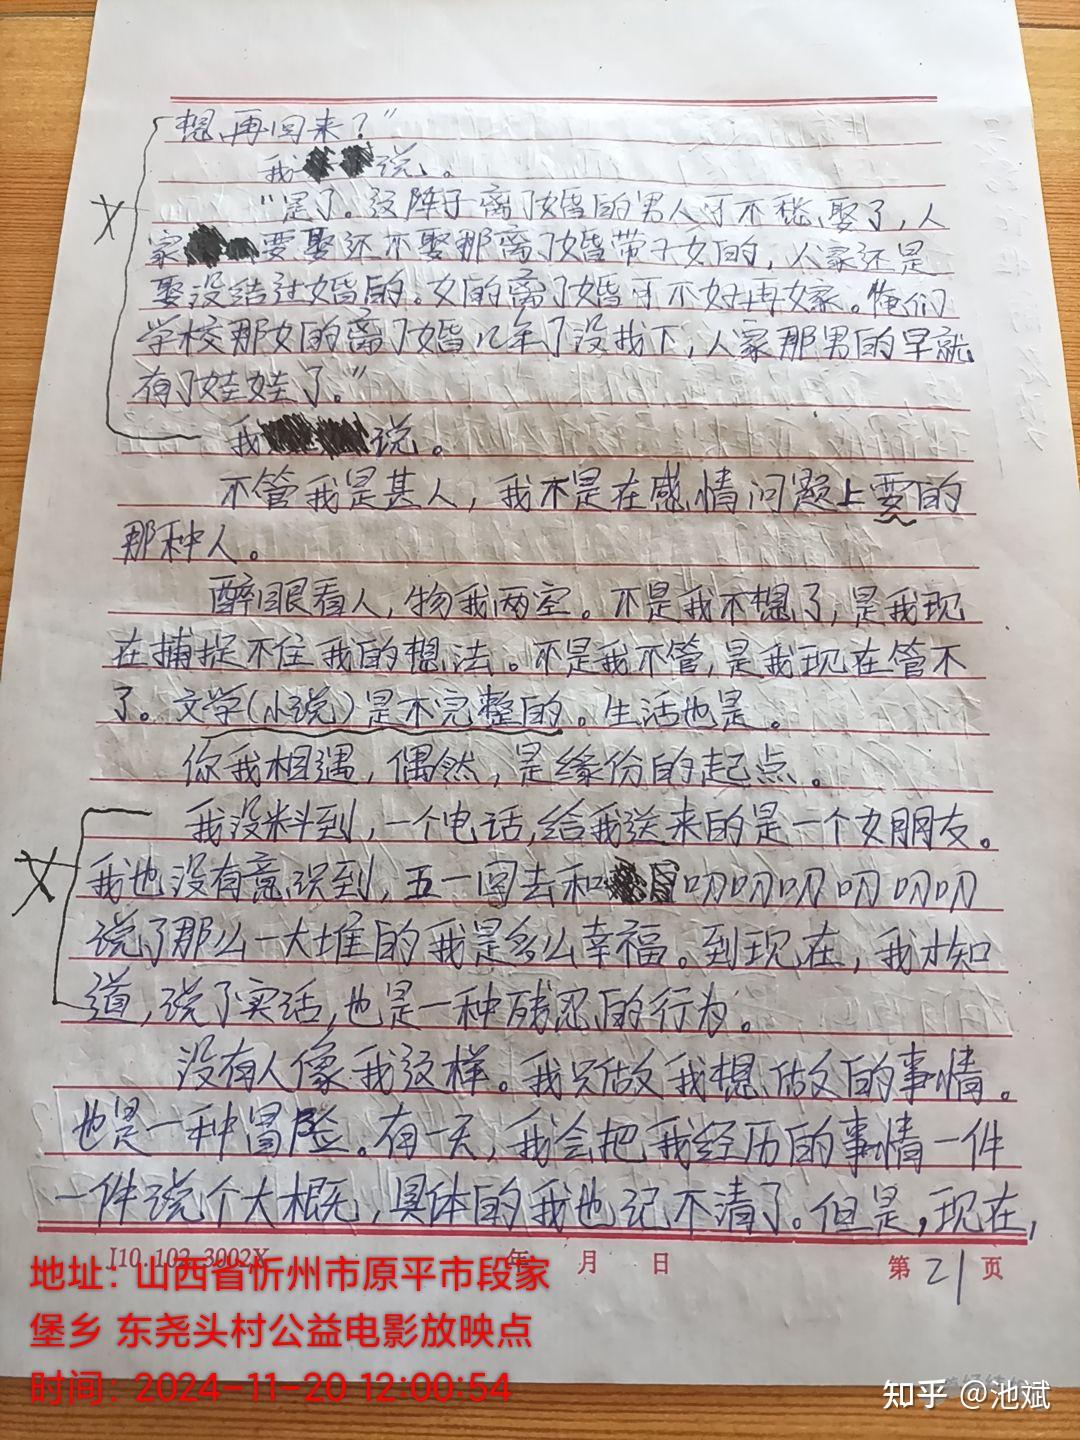 想再回来？”
我 说。
“是了。这阵子离了婚的男人可不愁娶了，人
家 要娶还不娶那离了婚带子女的，人家还是
娶没结过婚的。女的离了婚可不好再嫁。俺们
学校那女的离了婚几年了没找下，人家那男的早就
有了娃娃了。”
我 说。
不管我是甚人，我不是在感情问题上耍的
那种人。
醉眼看人，物我两空。不是我不想了，是我现
在捕捉不住我的想法。不是我不管，是我现在管不
了。文学（小说）是不完整的。生活也是。
你我相遇，偶然，是缘份的起点。
我没料到，一个电话，给我送来的是一个女朋友。
我也没有意识到，五一回去和 叨叨叨叨叨叨
说了那么一大堆的我是多么幸福。到现在，我才知
道，说了实话，也是一种残忍的行为。
没有人像我这样。我只做我想做的事情。
也是一种冒险。有一天，我会把我经历的事情一件
一件说个大概，具体的我也记不清了。但是，现在，
J10.102.3002X 年 月 日 第 21 页
地址：山西省忻州市原平市段家
堡乡 东尧头村公益电影放映点
时间：2024-11-20 12:00:54
知乎 @池斌
X
X